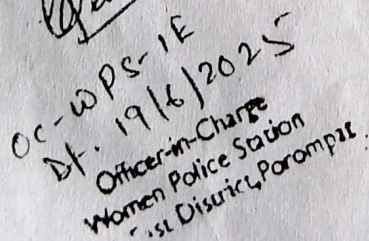 OC-WPS-IE
Dt. 19/6/2025
Officer-in-Charge
Women Police Station
District, Porompat